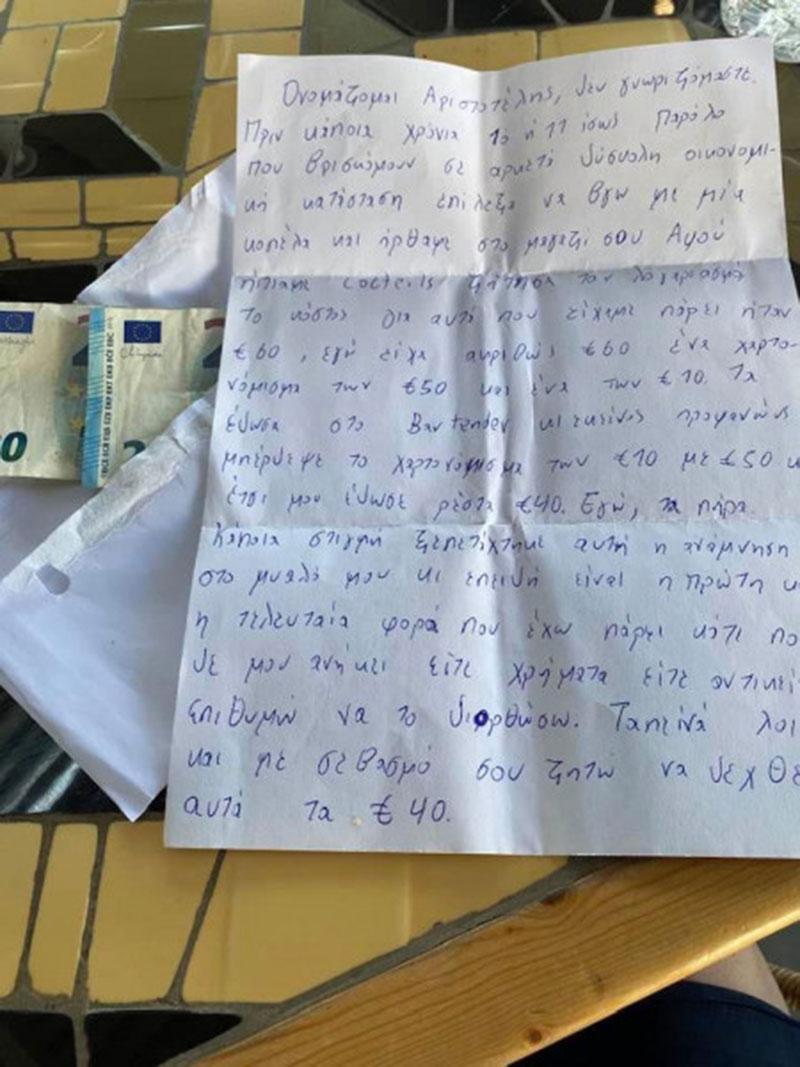 Ονομάζομαι Αριστοτέλης, δεν γνωριζόμαστε.
Πριν κάποια χρόνια 10 ή 11 ίσως Παρόλο
που βρισκόμουν σε αρκετά δύσκολη οικονομι-
κή κατάσταση επίλεξα να βγω με μία
κοπέλα και ήρθαμε στο μαγαζί σου Αφού
ήπιαμε cocteils ζήτησα τον λογαριασμό
Το κόστος για αυτά που είχαμε πάρει ήταν
€60, εγώ είχα ακριβώς €60 ένα χαρτο-
νόμισμα των €50 και ένα των €10. Τα
έδωσα στο Bartender κι εκείνος προφανώς
μπέρδεψε το χαρτονόμισμα των €10 με €50 κ
έτσι μου έδωσε ρέστα €40. Εγώ, τα πήρα.
Κάποια στιγμή ξεπετάχτηκε αυτή η ανάμνηση
στο μυαλό μου κι επειδή είναι η πρώτη κ
η τελευταία φορά που έχω πάρει κάτι πο
δε μου ανήκει είτε χρήματα είτε αντικεί
επιθυμώ να το διορθώσω. Ταπεινά λοι
και με σεβασμό σου ζητώ να δεχθε
αυτά τα €40.